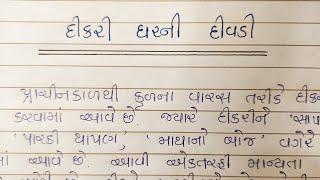 દીકરી ઘરની દીવડી
પ્રાચીનકાળથી કુળના વારસ તરીકે
કરવામાં આવે છે. જ્યારે દીકરીને 'સાપ
'પારકી થાપણ', 'માથાનો બોજ' વગેરે
આવે છે. આવી એકતરફી માન્યતા